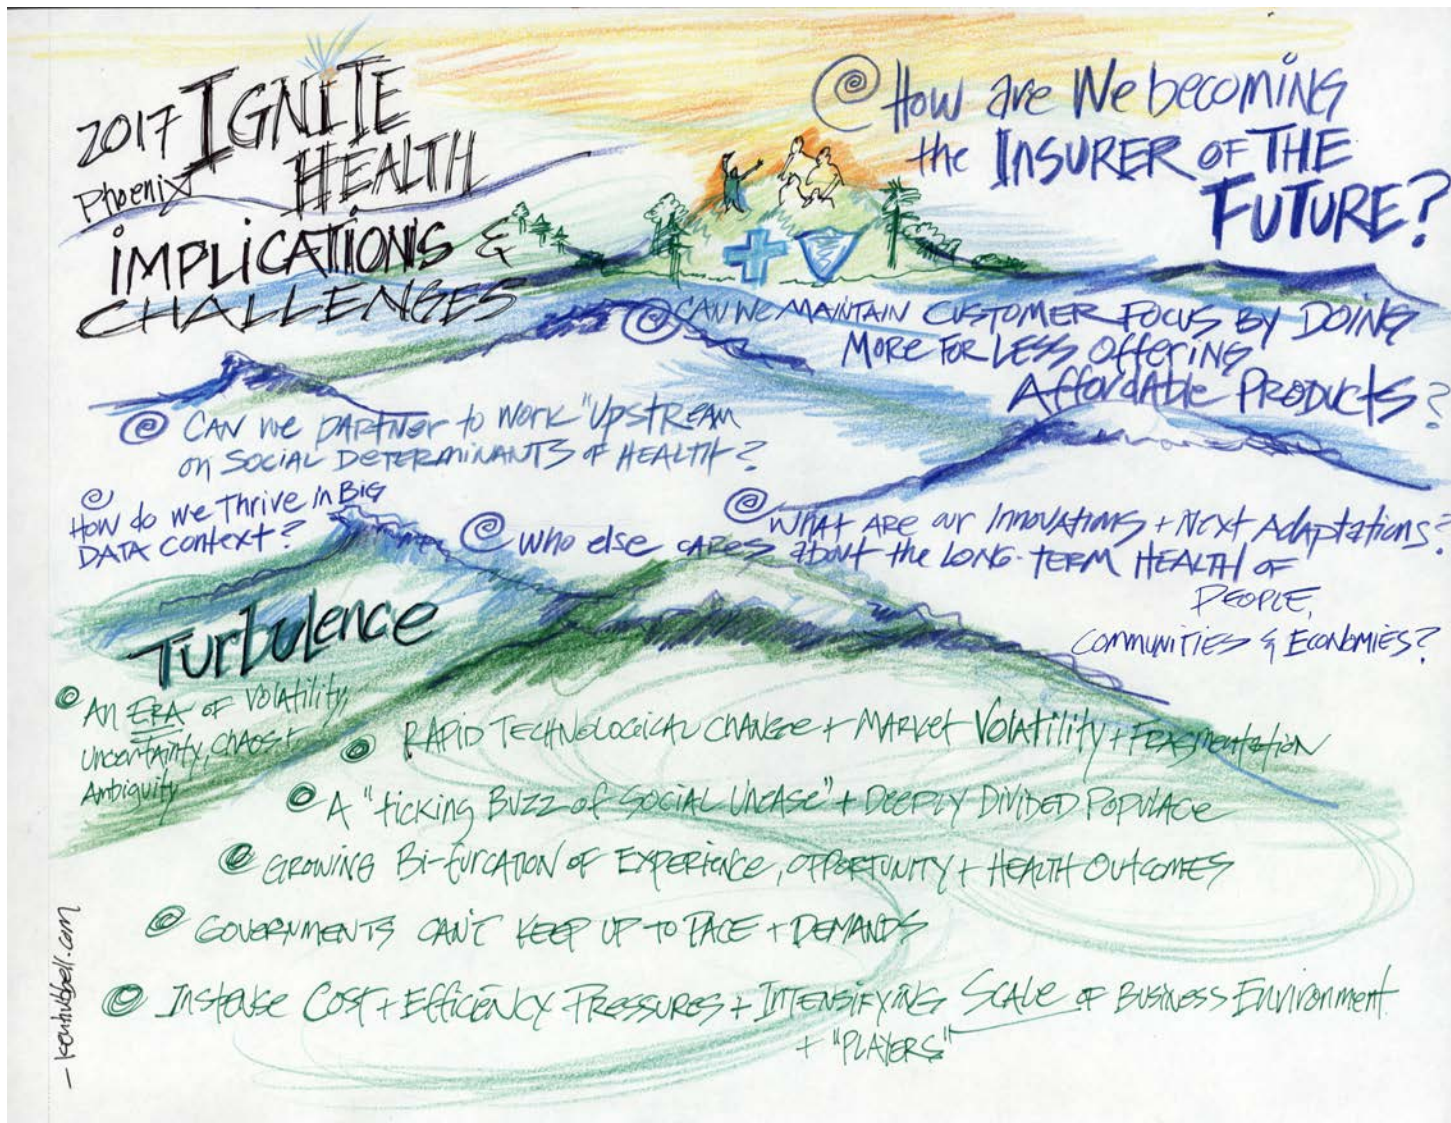 2017 IGNITE
Phoenix HEALTH
IMPLICATIONS &
CHALLENGES
How are We becoming
the INSURER OF THE
FUTURE?
CAN WE MAINTAIN CUSTOMER FOCUS BY DOING
MORE FOR LESS, OFFERING
Affordable PRODUCTS?
CAN we PARTNER to Work "Upstream
on SOCIAL DETERMINANTS OF HEALTH?
How do we Thrive in Big
DATA Context?
What ARE our Innovations + Next Adaptations?
Who else CARES about the LONG-TERM HEALTH OF
PEOPLE,
COMMUNITIES & ECONOMIES?
Turbulence
An ERA OF Volatility,
Uncertainty, CHAOS +
Ambiguity
RAPID TECHNOLOGICAL CHANGE + MARKET Volatility + Fragmentation
A "ticking BUZZ of SOCIAL UNEASE" + DEEPLY DIVIDED POPULACE
GROWING Bi-furcation OF EXPERIENCE, OPPORTUNITY + HEALTH OUTCOMES
GOVERNMENTS CAN'T KEEP UP TO PACE + DEMANDS
Instense Cost + Efficiency PRESSURES + INTENSIFYING SCALE OF BUSINESS Environment
+ "PLAYERS"